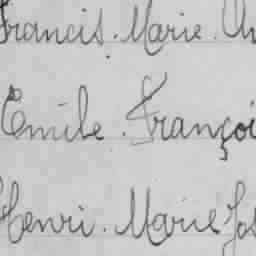 Francis. Marie.
Emile. Françoi
Henri. Marie Jos